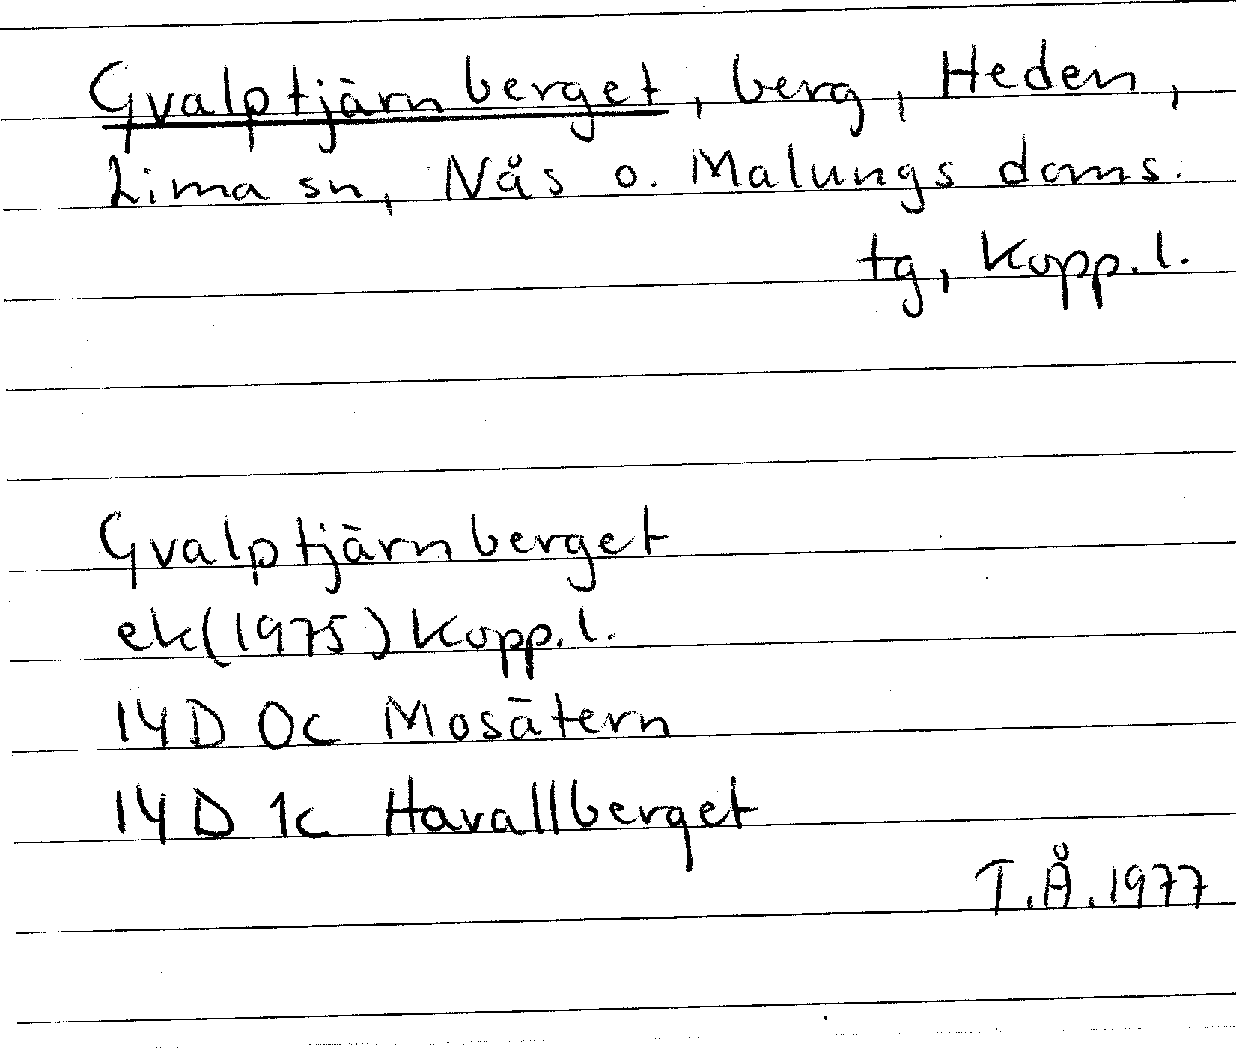 Gvalptjärnberget, berg, Heden,
Lima sn, Nås o. Malungs doms.
tg, Kopp.l.
Gvalptjärnberget
ek(1975) Kopp.l.
14D 0c Mosätern
14D 1c Havallberget
T.Å.1977